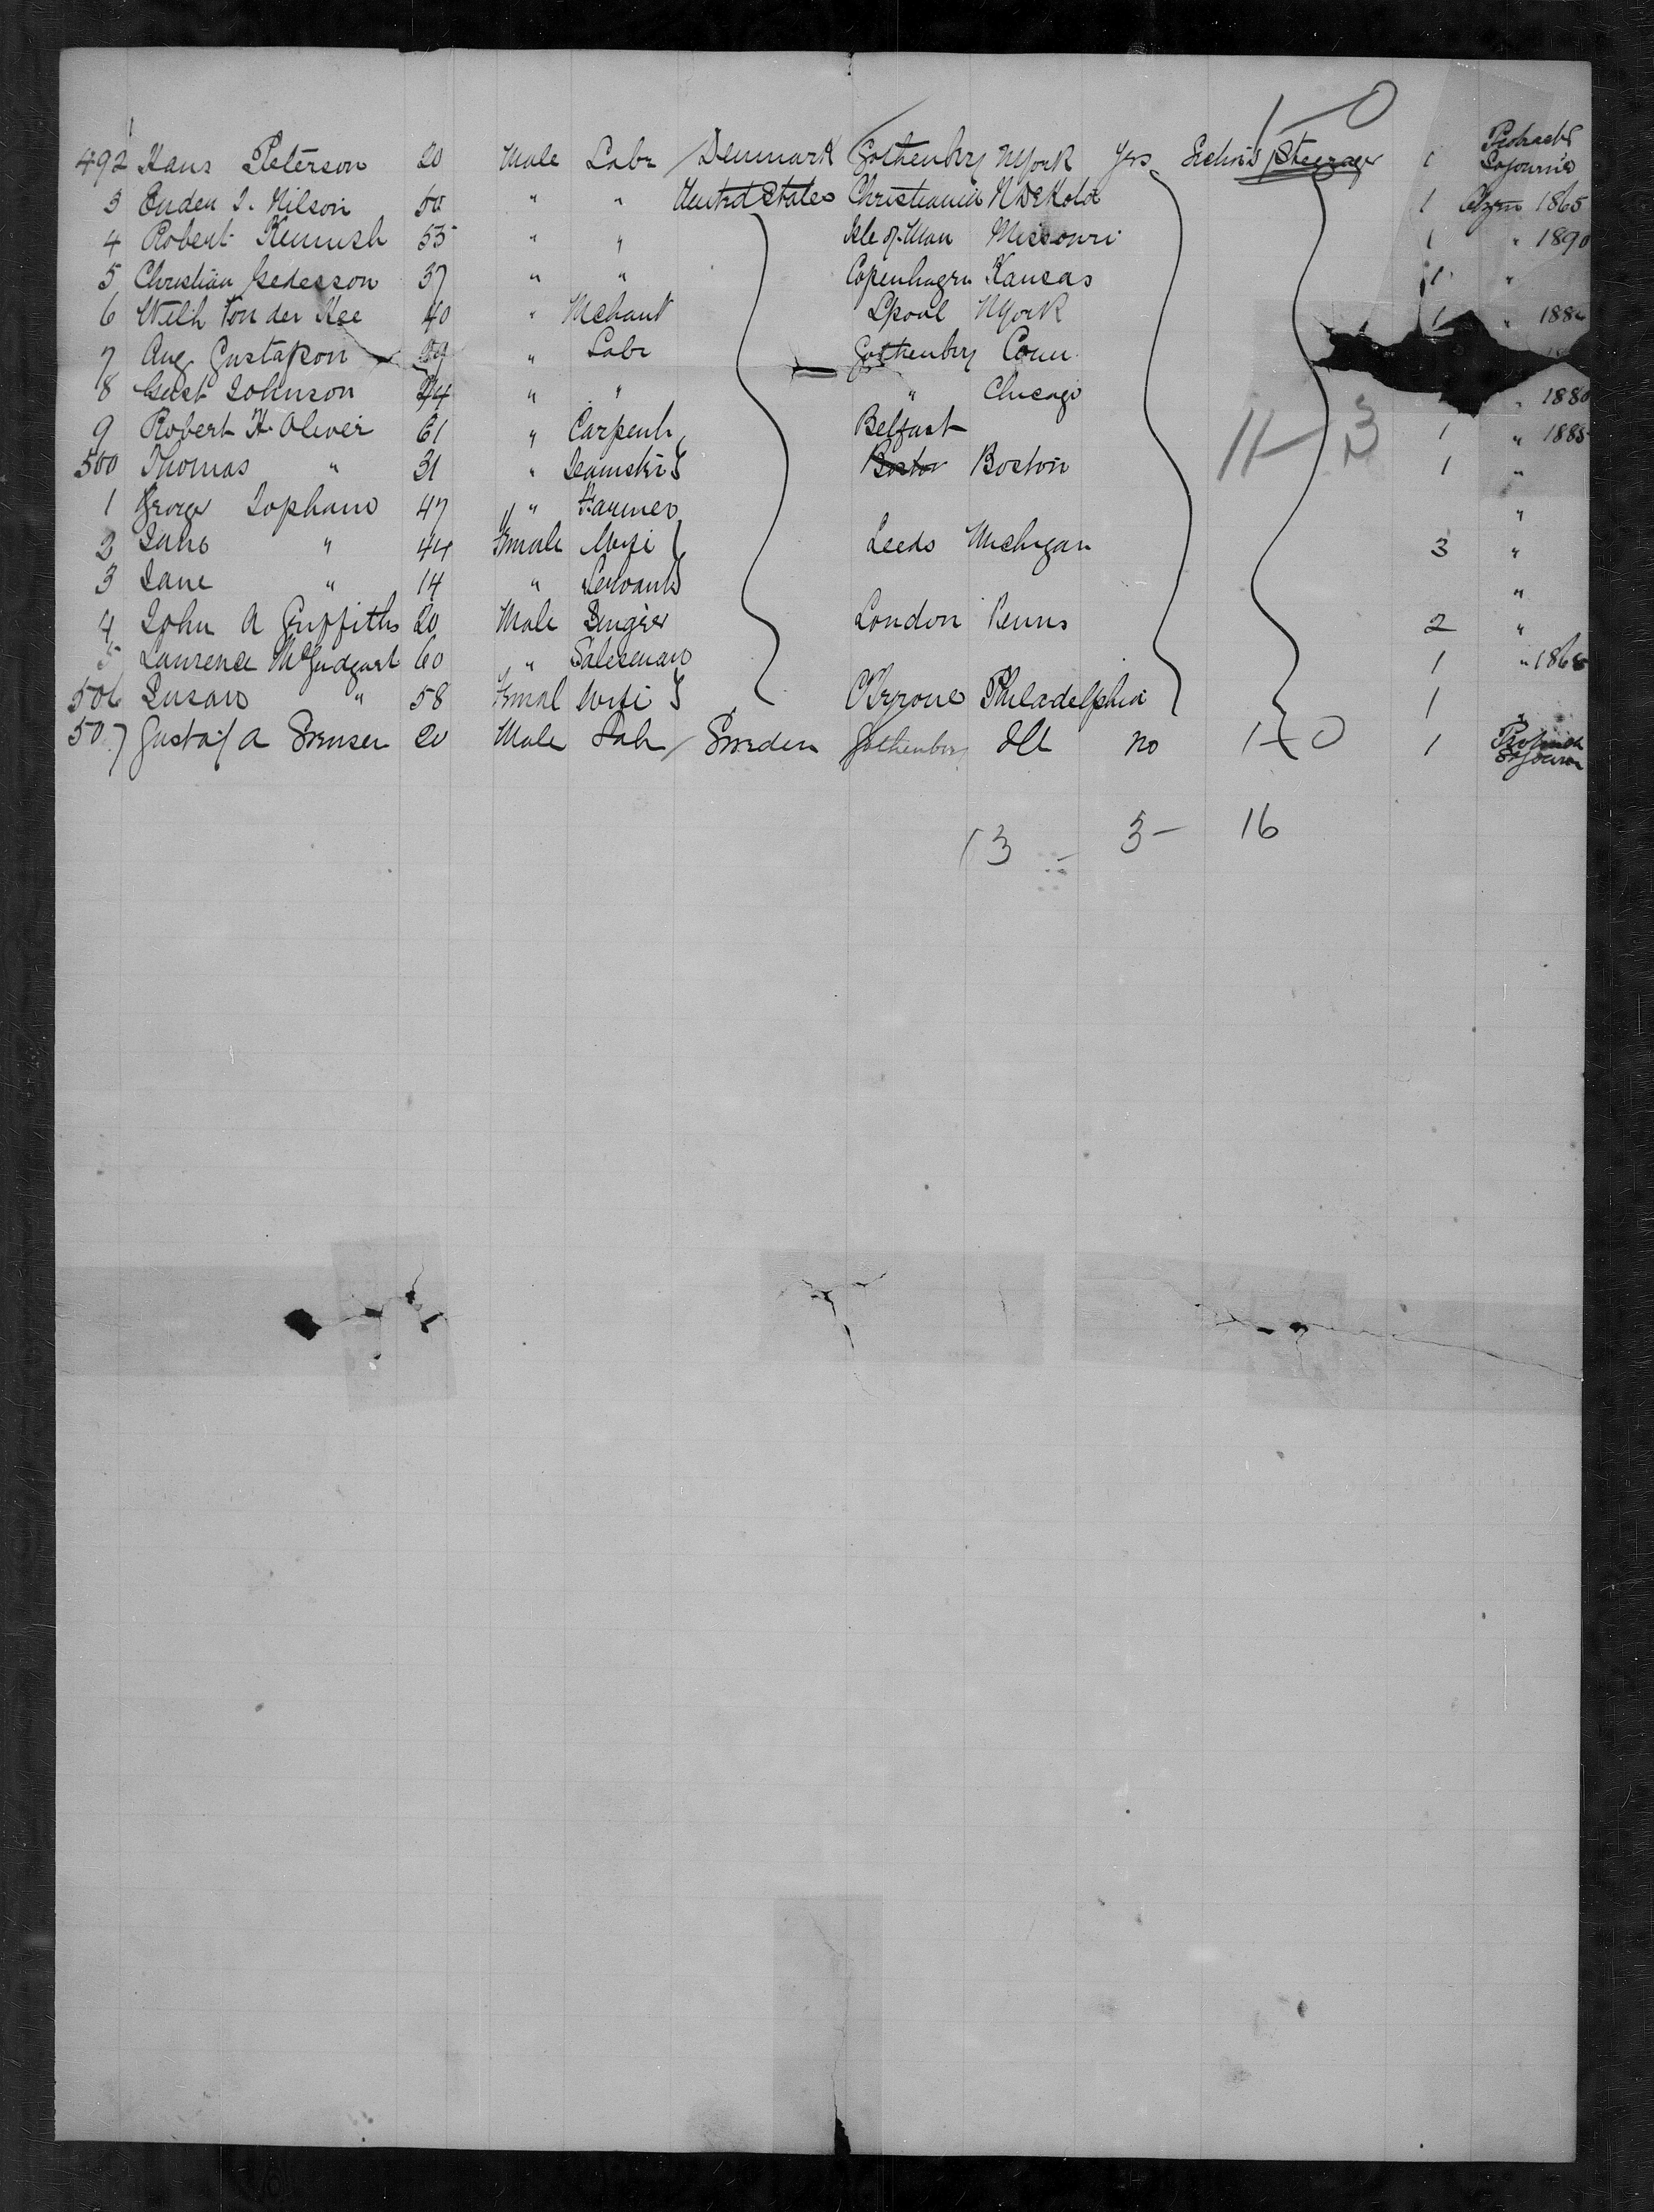 1 - 0
492 Hans Peterson 20 Male Labr Denmark Gothenbrg NYork Yes Steerage 1 Protracted Sojourn
3 Enden J. Nilson 50 " " United States Christiania N Dekota 1 Ctzen 1865
4 Robert Kermish 55 " " Isle of Man Missouri 1 " 1890
5 Christian 37 " " Copenhagen Kansas 1 "
6 Wilh Von der Hee 40 " Mchant Lpool NYork 1 "
7 Aug Gustafson 29 " Labr Gothenbrg Conn
8 Gust Johnson 24 " " " Chicago " 1880
9 Robert H. Oliver 61 " Carpentr Belfast 1 " 1885
500 Thomas " 31 " Boston Boston 1 "
11 - 3
1 George Lopham 47 " Farmer "
2 Jane " 44 Female Wife Leeds Michigan 3 "
3 Jane " 14 " Servant "
4 John A Griffiths 20 Male London Penns 2 "
5 Laurence 60 " Salesman 1 "
506 Susan " 58 Femal Wife Philadelphia 1 "
507 Gustaf A 20 Male Labr Sweden Gothenbrg Ill No 1 - 0 1 Protracted Sojourn
13 - 3 - 16